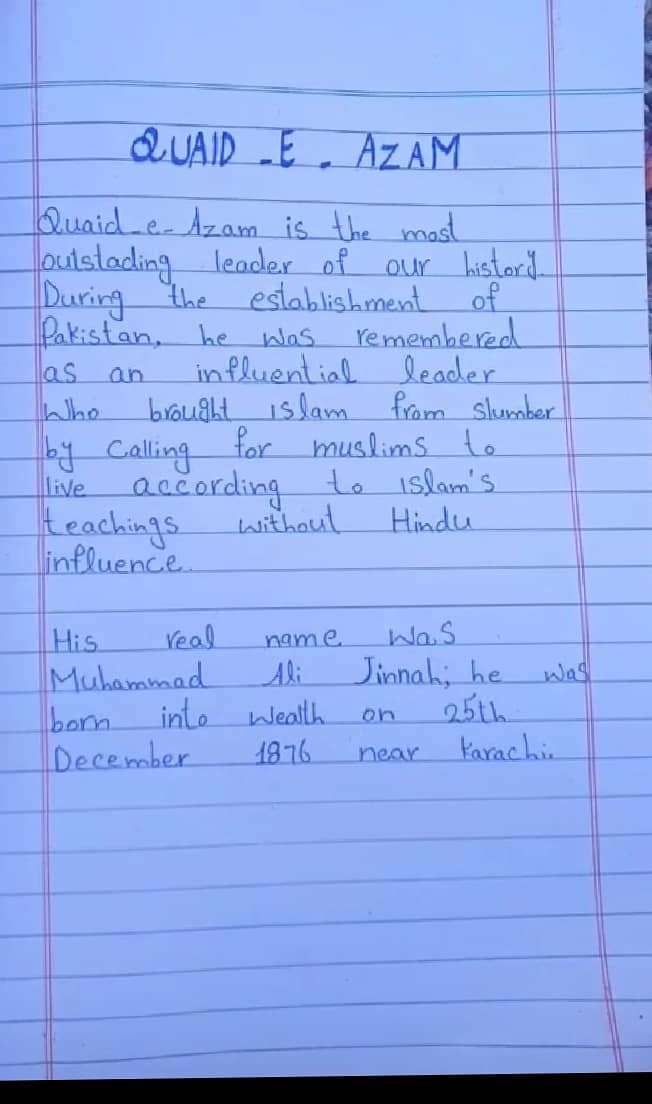 QUAID -E- AZAM
Quaid-e-Azam is the most
outstading leader of our history.
During the establishment of
Pakistan, he was remembered
as an influential leader
Who brought islam from Slumber
by Calling for muslims to
live according to islam's
teachings without Hindu
influence.
His real name was
Muhammad Ali Jinnah; he was
born into wealth on 25th
December 1876 near Karachi.